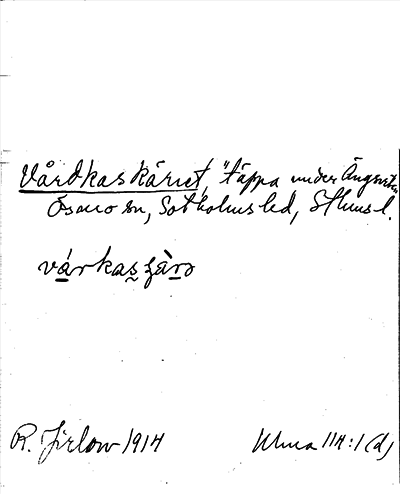 Vårdkaskärret, "täppa under Ängsviken
Ösmo sn, Sotholms hd, Sthms l.
várkasʒä̀rə
R. Jirlow 1914
Ulma 114:1 (d)